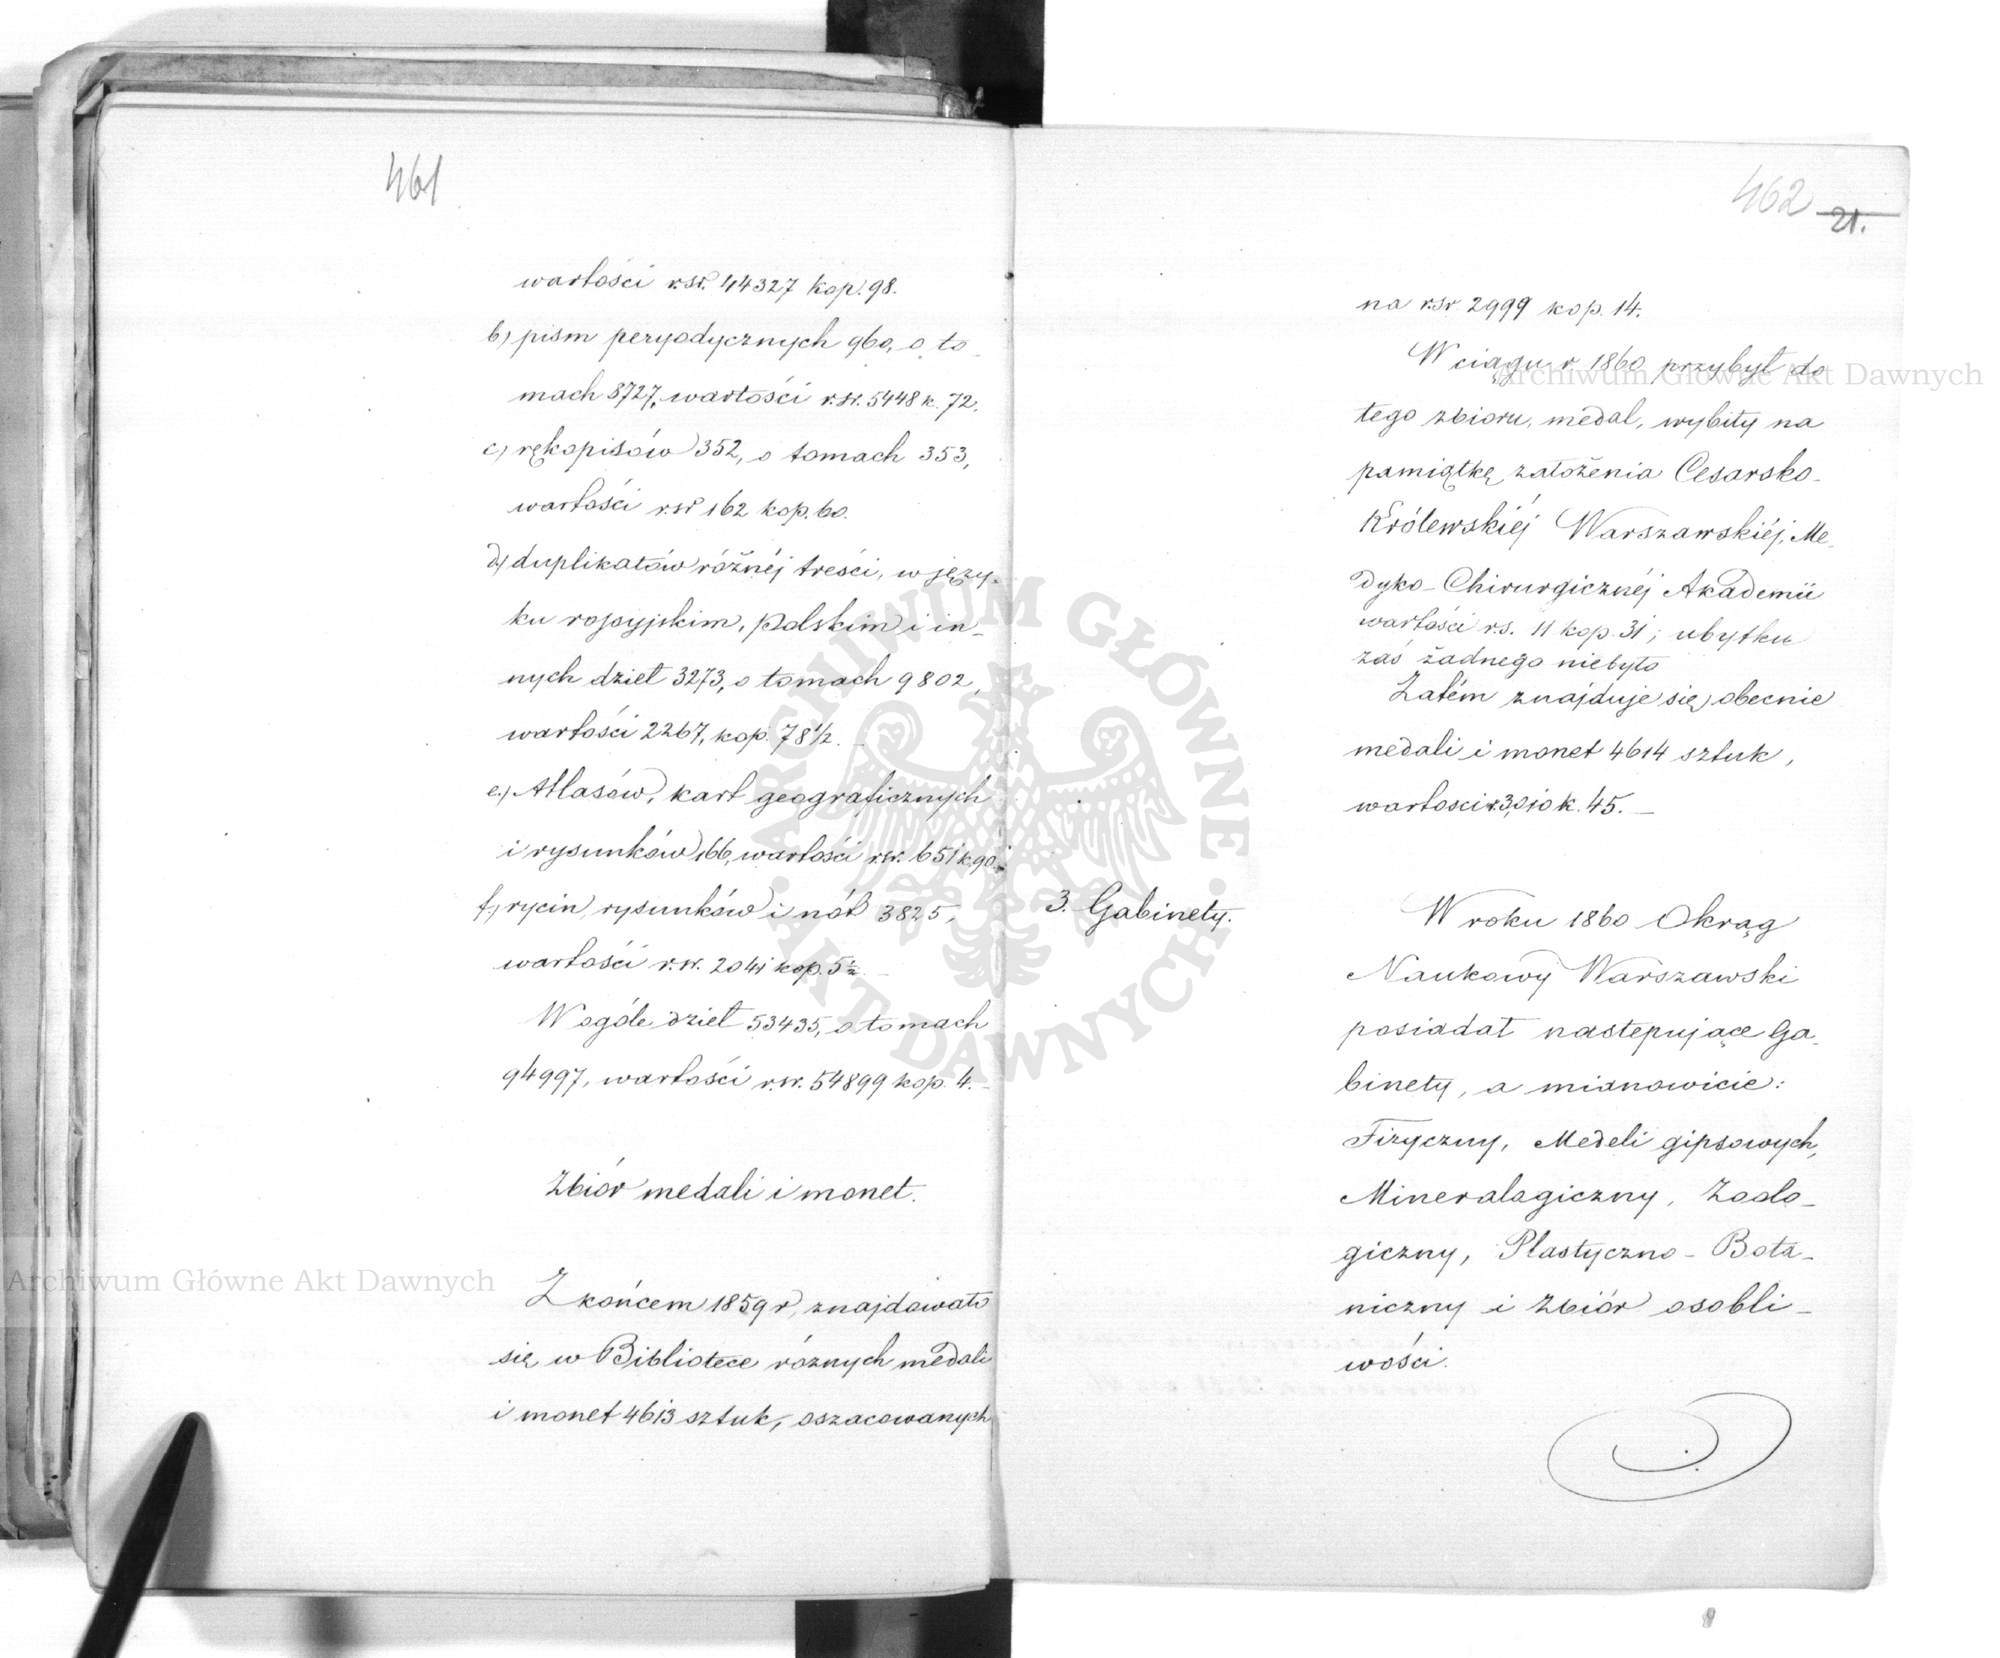 461
wartości rsr. 44327 kop. 98.
b) pism peryodycznych 960, o to-
mach 8727, wartości r.sr. 5448 k. 72.
c) rękopisów 352, o tomach 353,
wartości rsr 162 kop. 60.
d) duplikatów różnéj treści, w języ-
ku rossyjskim, polskim i in-
nych dzieł 3273, o tomach 9802,
wartości 2267, kop. 78 1/2. –
e) Atlasów, kart geograficznych
i rysunków 166, wartości rsr. 651 k. 90.
f.) rycin, rysunków i nót 3825,
wartości r.sr. 2041 kop. 5 1/2. –
W ogóle dzieł 53435, o tomach
94997, wartości r.sr. 54899 kop. 4. –
Zbiór medali i monet.
Z końcem 1859 r, znajdowało
się w Bibliotece róznych medali
i monet 4613 sztuk, oszacowanych
462
21.
na rsr 2999 kop. 14.
W ciągu r. 1860 przybył do
tego zbioru, medal, wybity na
pamiątkę założenia Cesarsko-
Królewskiéj Warszawskiéj, Me-
dyko-Chirurgicznéj Akademii
wartości r.s. 11 kop. 31; ubytku
zaś żadnego niebyło
Zatém znajduje się obecnie
medali i monet 4614 sztuk,
wartosci r. 3,010 k. 45. –
3. Gabinety.
W roku 1860 Okrąg
Naukowy Warszawski
posiadał nastepujące Ga-
binety, a mianowicie:
Fizyczny, Modeli gipsowych,
Mineralogiczny, Zoolo-
giczny, Plastyczno-Bota-
niczny i Zbiór osobli-
wości.
Archiwum Główne Akt Dawnych
Archiwum Główne Akt Dawnych
ARCHIWUM GŁÓWNE
AKT DAWNYCH